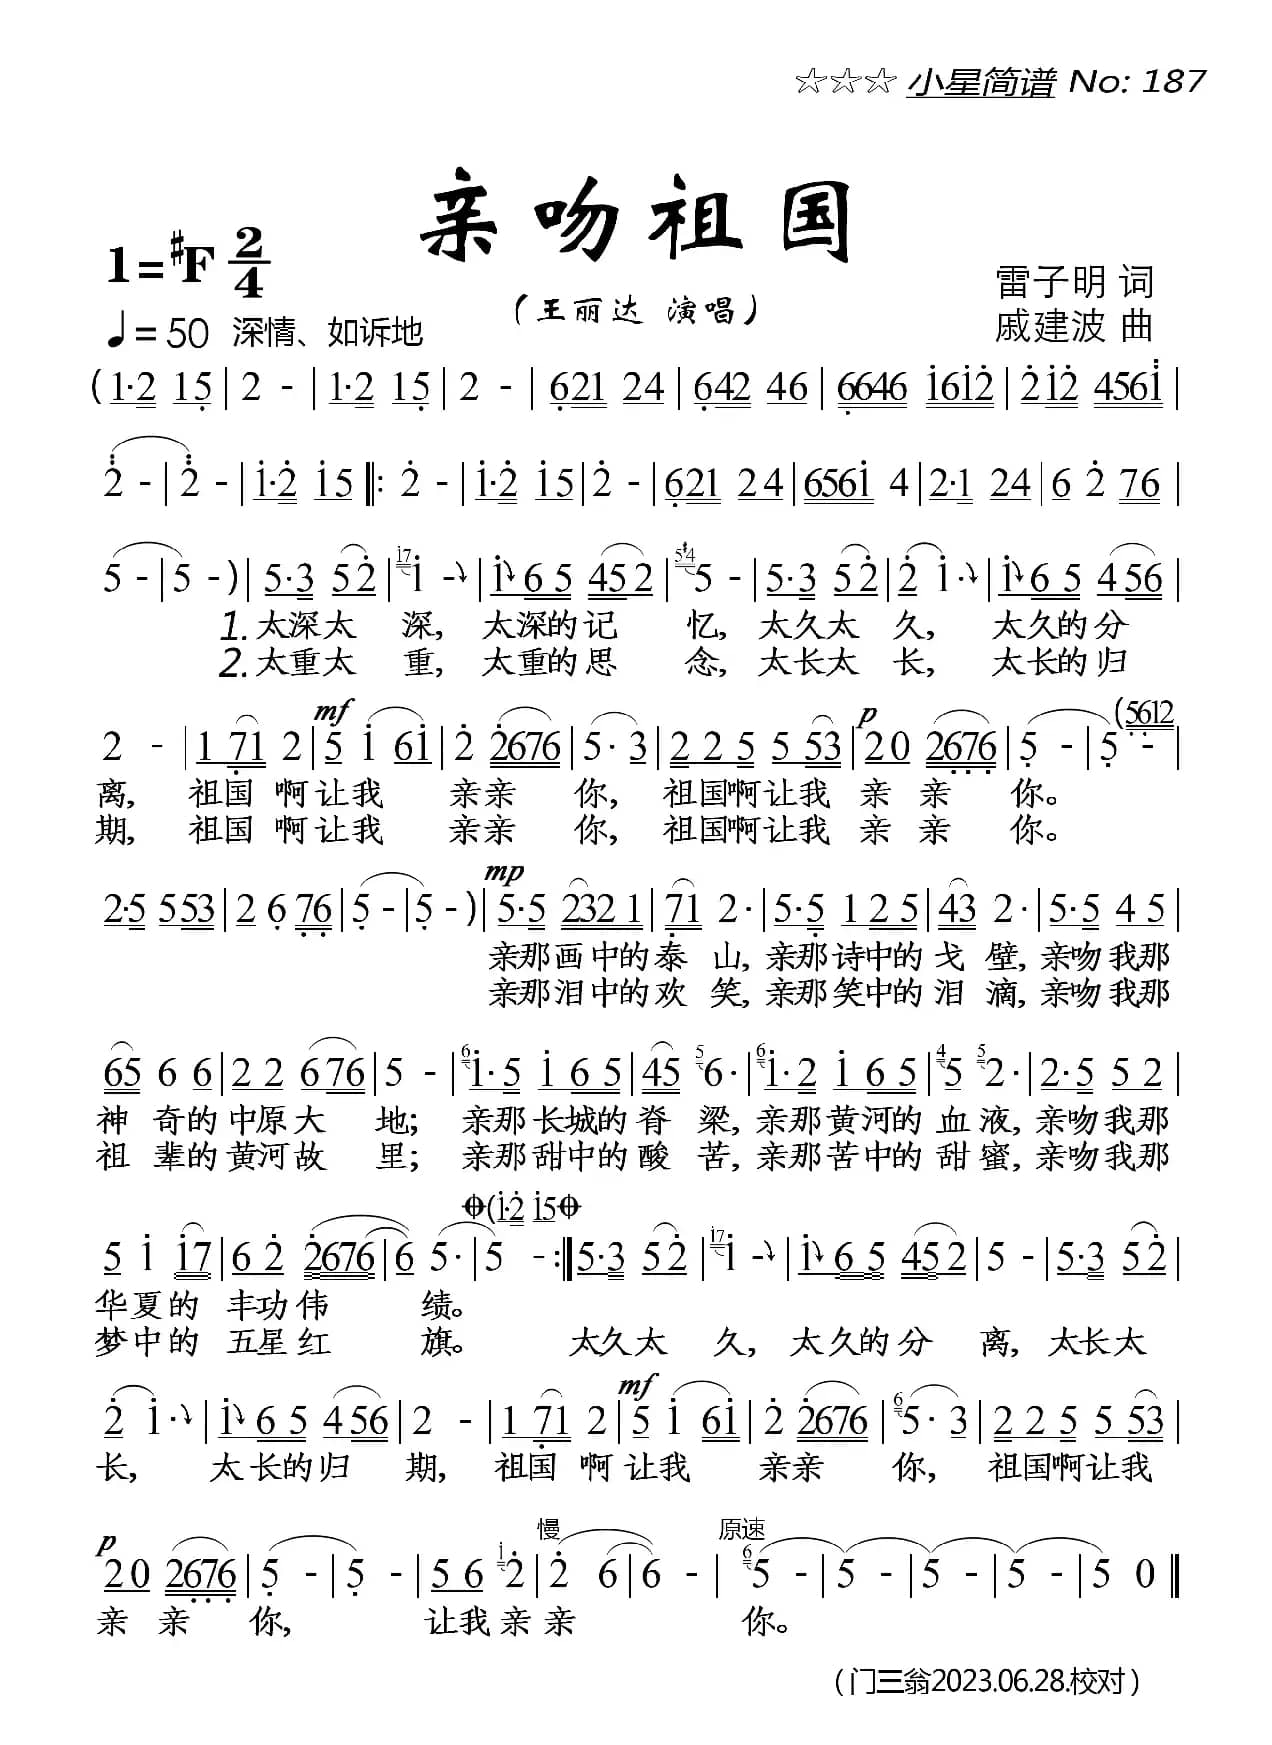 ☆☆☆ 小星简谱 No: 187
亲吻祖国
1=#F 2/4
(王丽达 演唱)
雷子明 词
♩=50 深情、如诉地
戚建波 曲
(1·2 15 | 2 - | 1·2 15 | 2 - | 621 24 | 642 46 | 6646 1612 | 212 4561 |
2 - | 2 - | 1·2 15 |: 2 - | 1·2 15 | 2 - | 621 24 | 6561 4 | 2·1 24 | 6 2 76 |
5 - | 5 - ) | 5·3 52 | 17 1 - | 1 65 452 | 5 - | 5·3 52 | 2 1· | 1 65 456 |
1. 太深太 深, 太深的记 忆, 太久太 久, 太久的分
2. 太重太 重, 太重的思 念, 太长太 长, 太长的归
mf p (5612
2 - | 1 71 2 | 5 1 61 | 2 2676 | 5· 3 | 2 2 5 5 53 | 20 2676 | 5 - | 5 - |
离, 祖国 啊让我 亲亲 你, 祖国啊让我 亲 亲 你。
期, 祖国 啊让我 亲亲 你, 祖国啊让我 亲 亲 你。
mp
2·5 553 | 2 6 76 | 5 - | 5 - ) | 5·5 2321 | 71 2· | 5·5 1 25 | 43 2· | 5·5 45 |
亲那画中的泰 山, 亲那诗中的 戈 壁, 亲吻我那
亲那泪中的欢 笑, 亲那笑中的 泪 滴, 亲吻我那
65 6 6 | 2 2 676 | 5 - | 6 1·5 1 65 | 45 5 6· | 6 1·2 1 65 | 4 5 5 2· | 2·5 52 |
神 奇的中原大 地; 亲那长城的脊 梁, 亲那黄河的 血 液, 亲吻我那
祖 辈的黄河故 里; 亲那甜中的酸 苦, 亲那苦中的 甜 蜜, 亲吻我那
(1·2 15
5 1 17 | 6 2 2676 | 6 5· | 5 - :| 5·3 52 | 17 1 - | 1 65 452 | 5 - | 5·3 52 |
华夏的 丰功伟 绩。
梦中的 五星红 旗。 太久太 久, 太久的分 离, 太长太
mf
2 1· | 1 65 456 | 2 - | 1 71 2 | 5 1 61 | 2 2676 | 6 5· 3 | 2 2 5 5 53 |
长, 太长的归 期, 祖国 啊让我 亲亲 你, 祖国啊让我
p 慢 原速
20 2676 | 5 - | 5 - | 56 1 2 | 2 6 | 6 - | 6 5 - | 5 - | 5 - | 5 - | 5 0 ||
亲 亲 你, 让我亲亲 你。
(门三翁2023.06.28.校对)